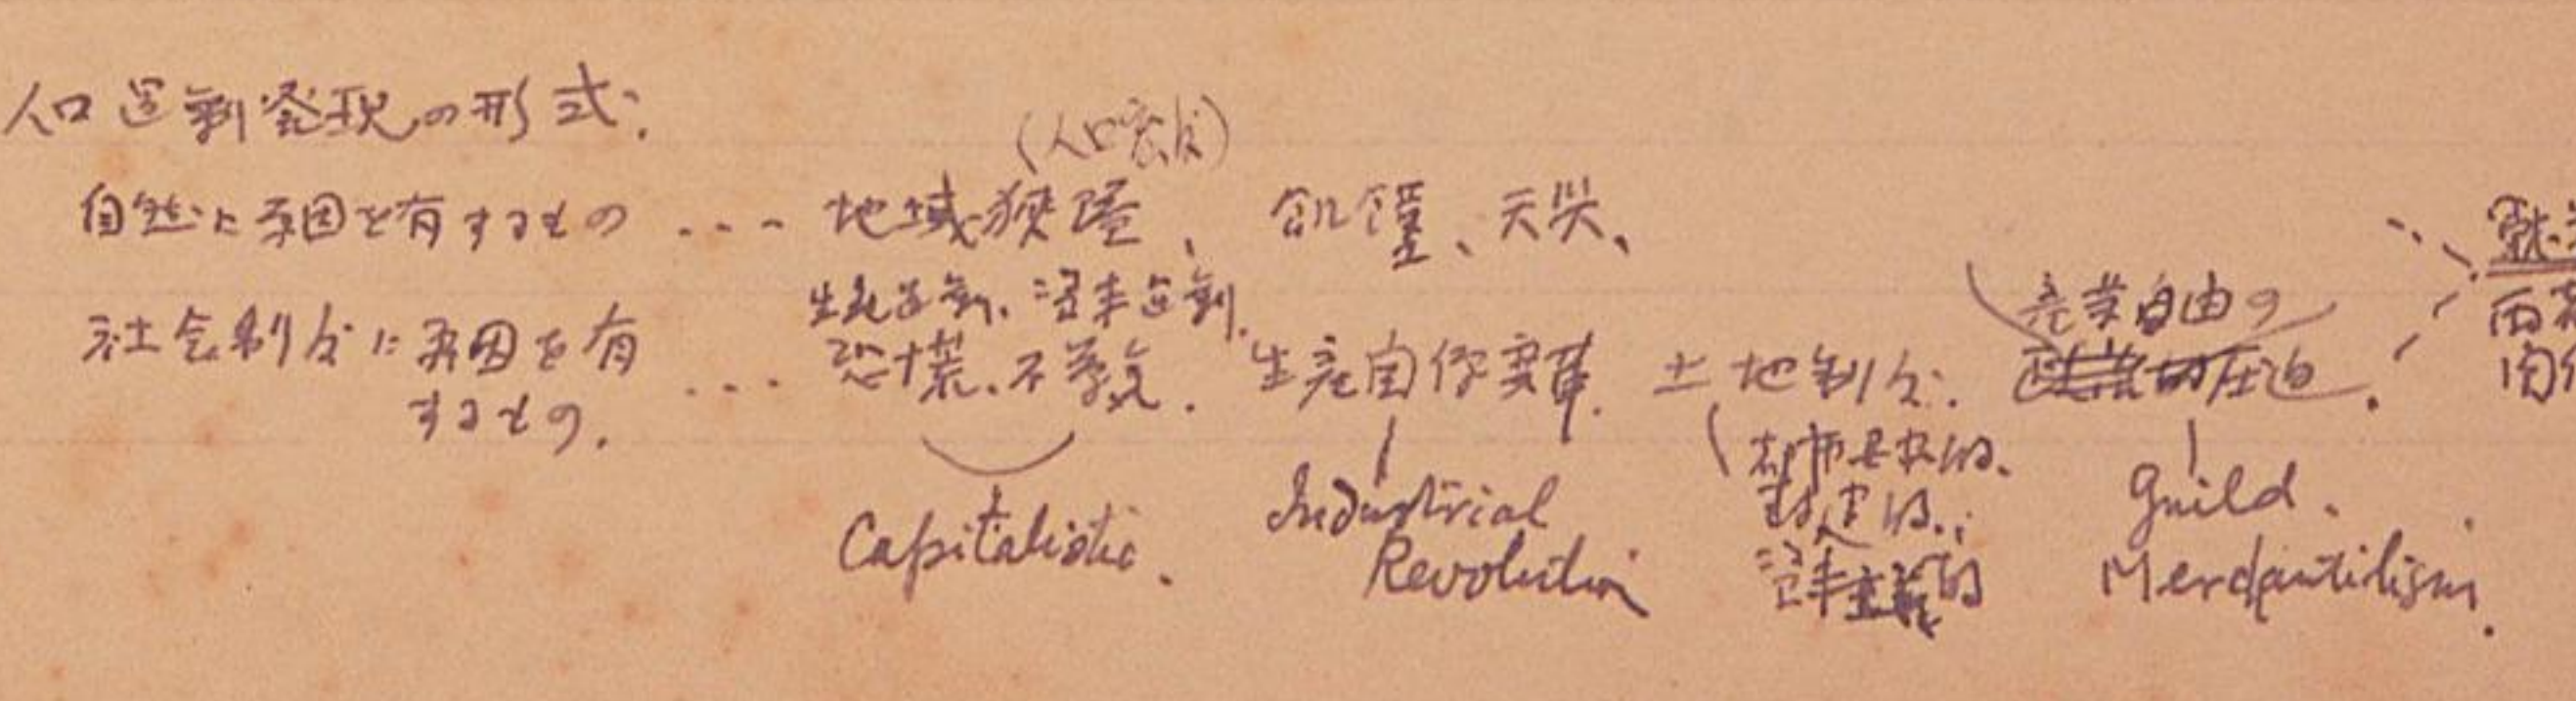 人口過剰発現の形式.
(人口密度)
自然に原因を有するもの ... 地域狭隘、飢饉、天災、
生産過剰、資本過剰.
社会制度に原因を有
するもの. ... 恐慌、不景気. 生産組織変革. 土地制度.
産業自由の
圧迫.
Capitalistic.
Industrial
Revolution
都市
封建的.
資本主義的
Guild.
Mercantilism.